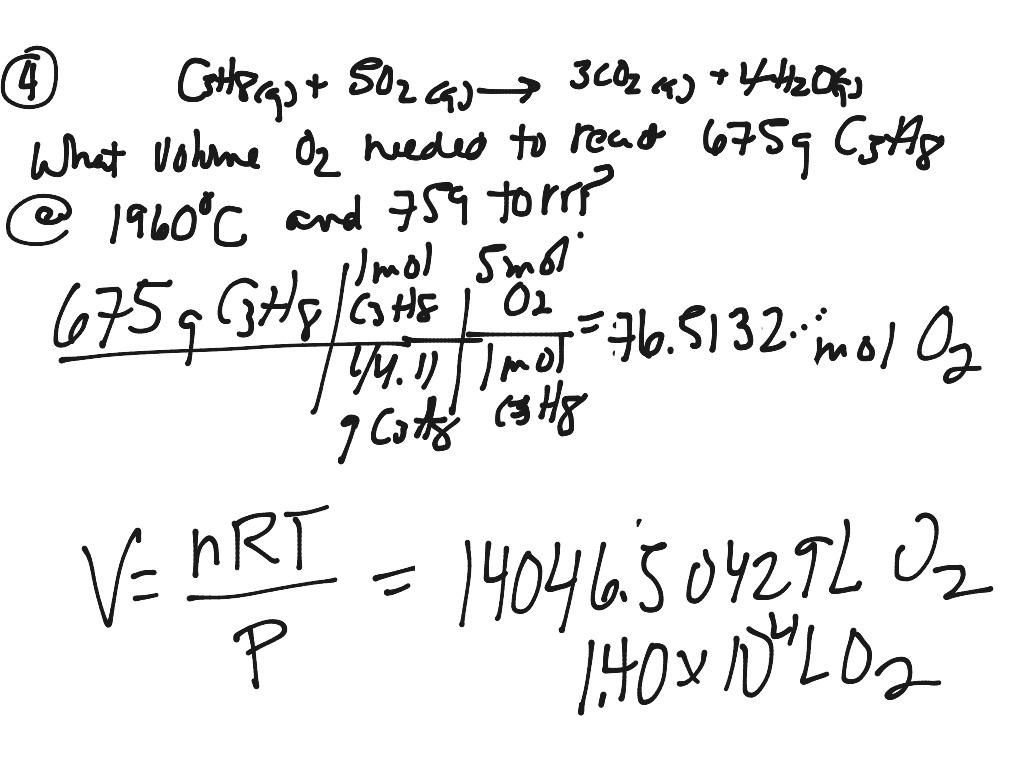 4 C3H8(g) + 5O2(g) → 3CO2(g) + 4H2O(g)
What Volume O2 needed to react 675g C3H8
@ 1960°C and 759 torr?
675g C3H8 | 1 mol C3H8 | 5 mol O2 = 76.5132... mol O2
44.11 g C3H8 | 1 mol C3H8
V = nRT = 14046.50429L O2
P
1.40 x 10^4 L O2